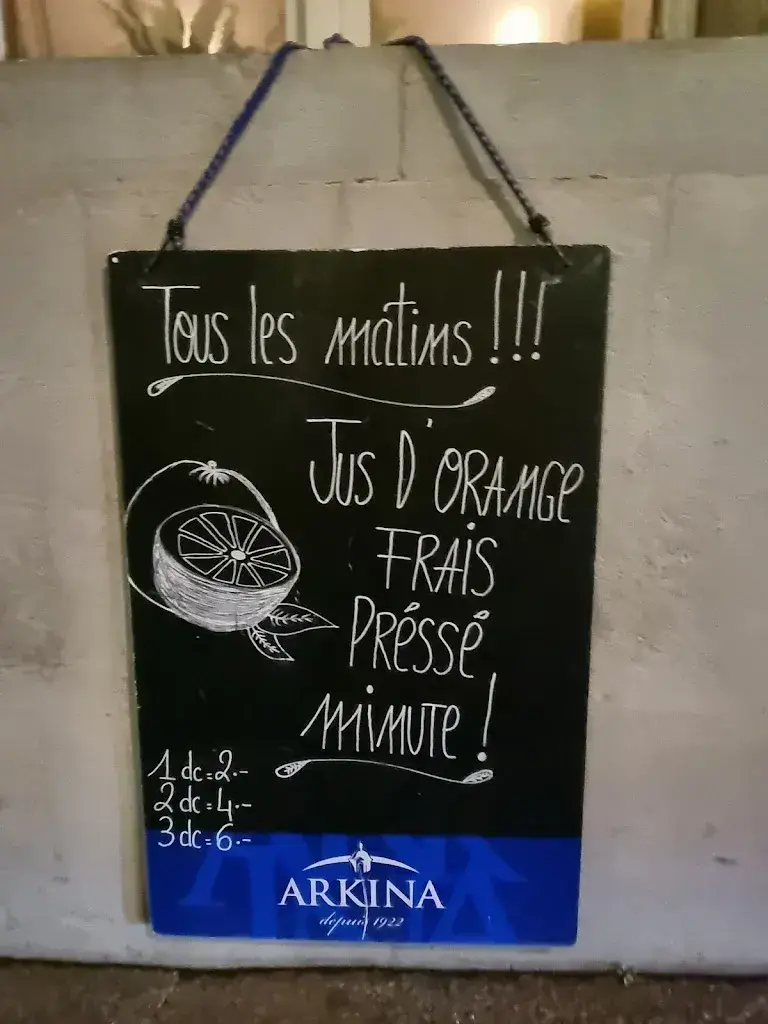 Tous les matins !!!
Jus D'ORANGE
FRAIS
PRéssé
minute !
1 dc = 2.-
2 dc = 4.-
3 dc = 6.-
ARKINA
depuis 1922